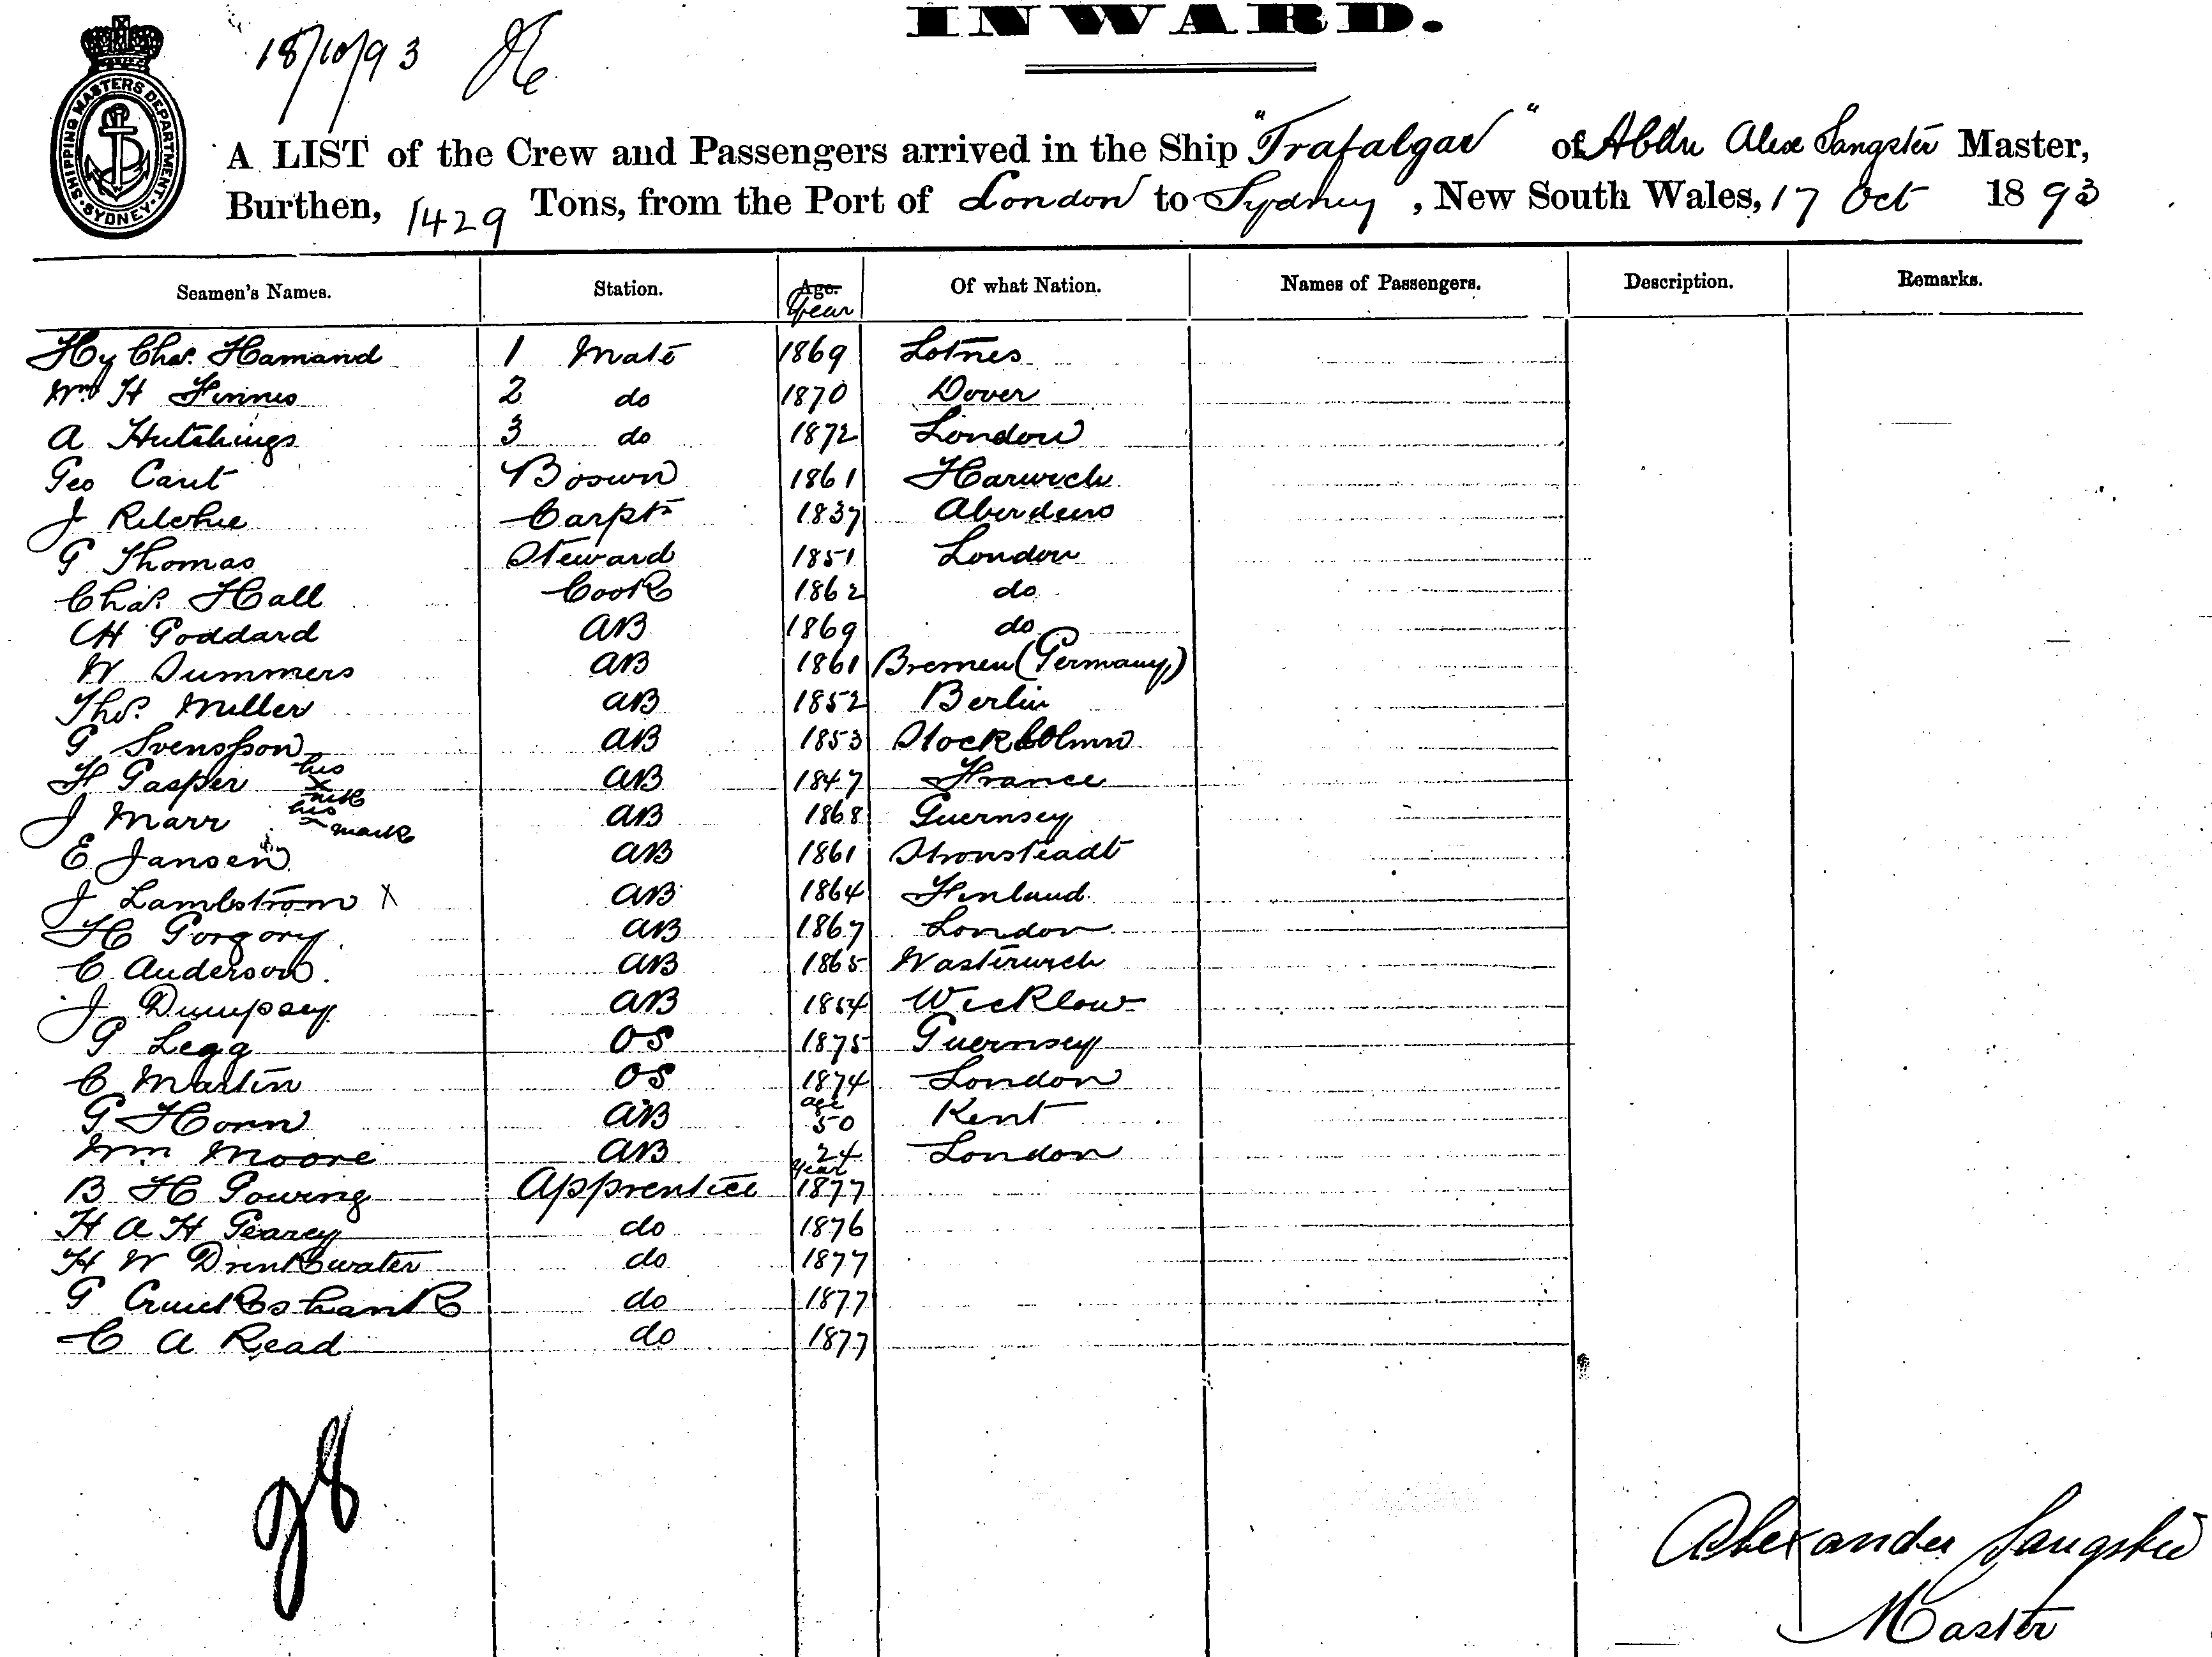 INWARD.
18/10/93
SHIPPING MASTERS DEPARTMENT · SYDNEY ·
A LIST of the Crew and Passengers arrived in the Ship "Trafalgar" of Alex Sangster Master,
Burthen, 1429 Tons, from the Port of London to Sydney, New South Wales, 17 Oct 1893
Seamen's Names. Station. Age. Year Of what Nation. Names of Passengers. Description. Remarks.
Hy Chas. Hamand 1 Mate 1869
Wm H Finnis 2 do 1870 Dover
A Hutchings 3 do 1872 London
Geo Cant Boswn 1861 Harwich
J Ritchie Carptr 1837 Aberdeen
G Thomas Steward 1851 London
Chas. Hall Cook 1862 do
CH Goddard AB 1869 do
W Summers AB 1861 Bremen (Germany)
Thos. Miller AB 1852 Berlin
G Svensson AB 1853 Stockholm
H Gasper his x mk AB 1847 France
J Marr his mark AB 1868 Guernsey
E Jansen AB 1861
J Lambstrom X AB 1864 Finland
H Gorgory AB 1867 London
C Anderson. AB 1865
J Dumpsey AB 1854 Wicklow
G Legg OS 1875 Guernsey
C Martin OS 1874 London
G Horn AB age 50 Kent
Wm Moore AB 24 London
B H Powring Apprentice Year 1877
H A H Pearey do 1876
H W Drinkwater do 1877
G Cruickshank do 1877
C A Read do 1877
Alexander Sangster
Master